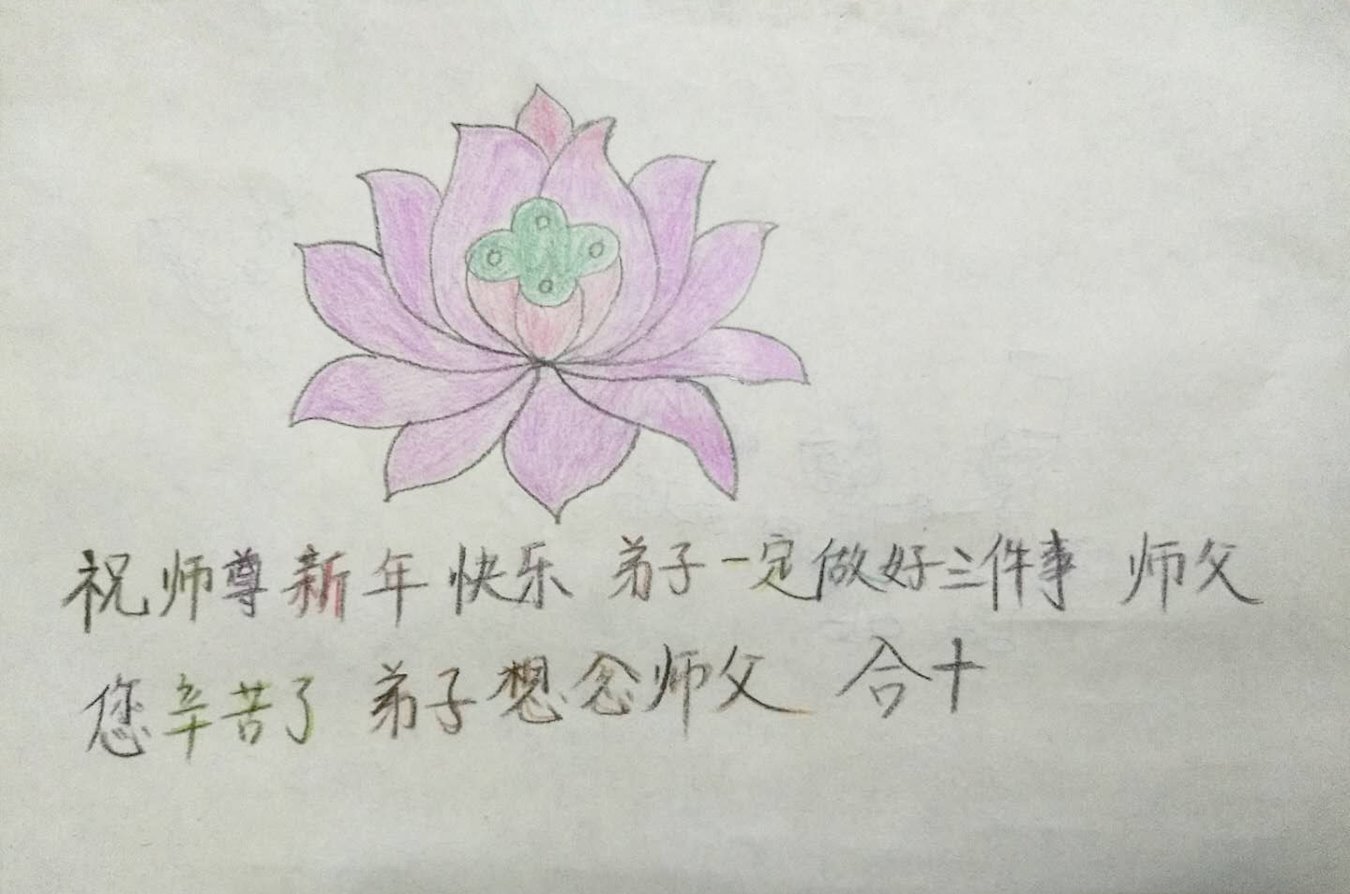 祝师尊新年快乐 弟子一定做好三件事 师父
您辛苦了 弟子想念师父 合十